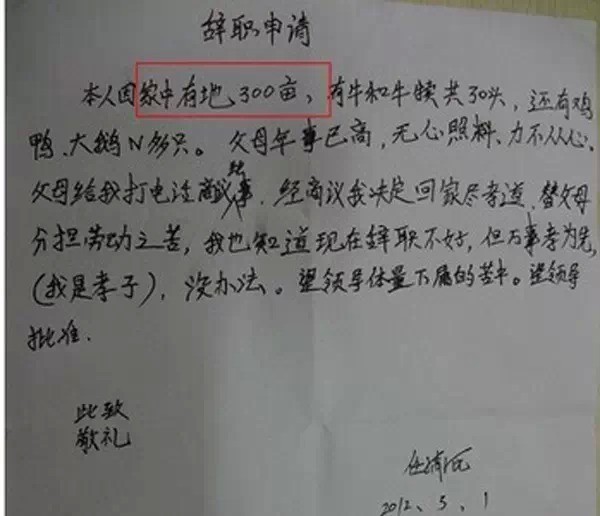 辞职申请
本人因家中有地300亩,有牛和牛犊共30头,还有鸡
鸭、大鹅N多只。父母年事已高,无心照料、力不从心、
父母给我打电话商议事.经商议我决定回家尽孝道,替父母
分担劳动之苦,我也知道现在辞职不好,但万事孝为先,
(我是孝子),没办法。望领导体量下属的苦中。望领导
批准.
此致
敬礼
2012、5、1